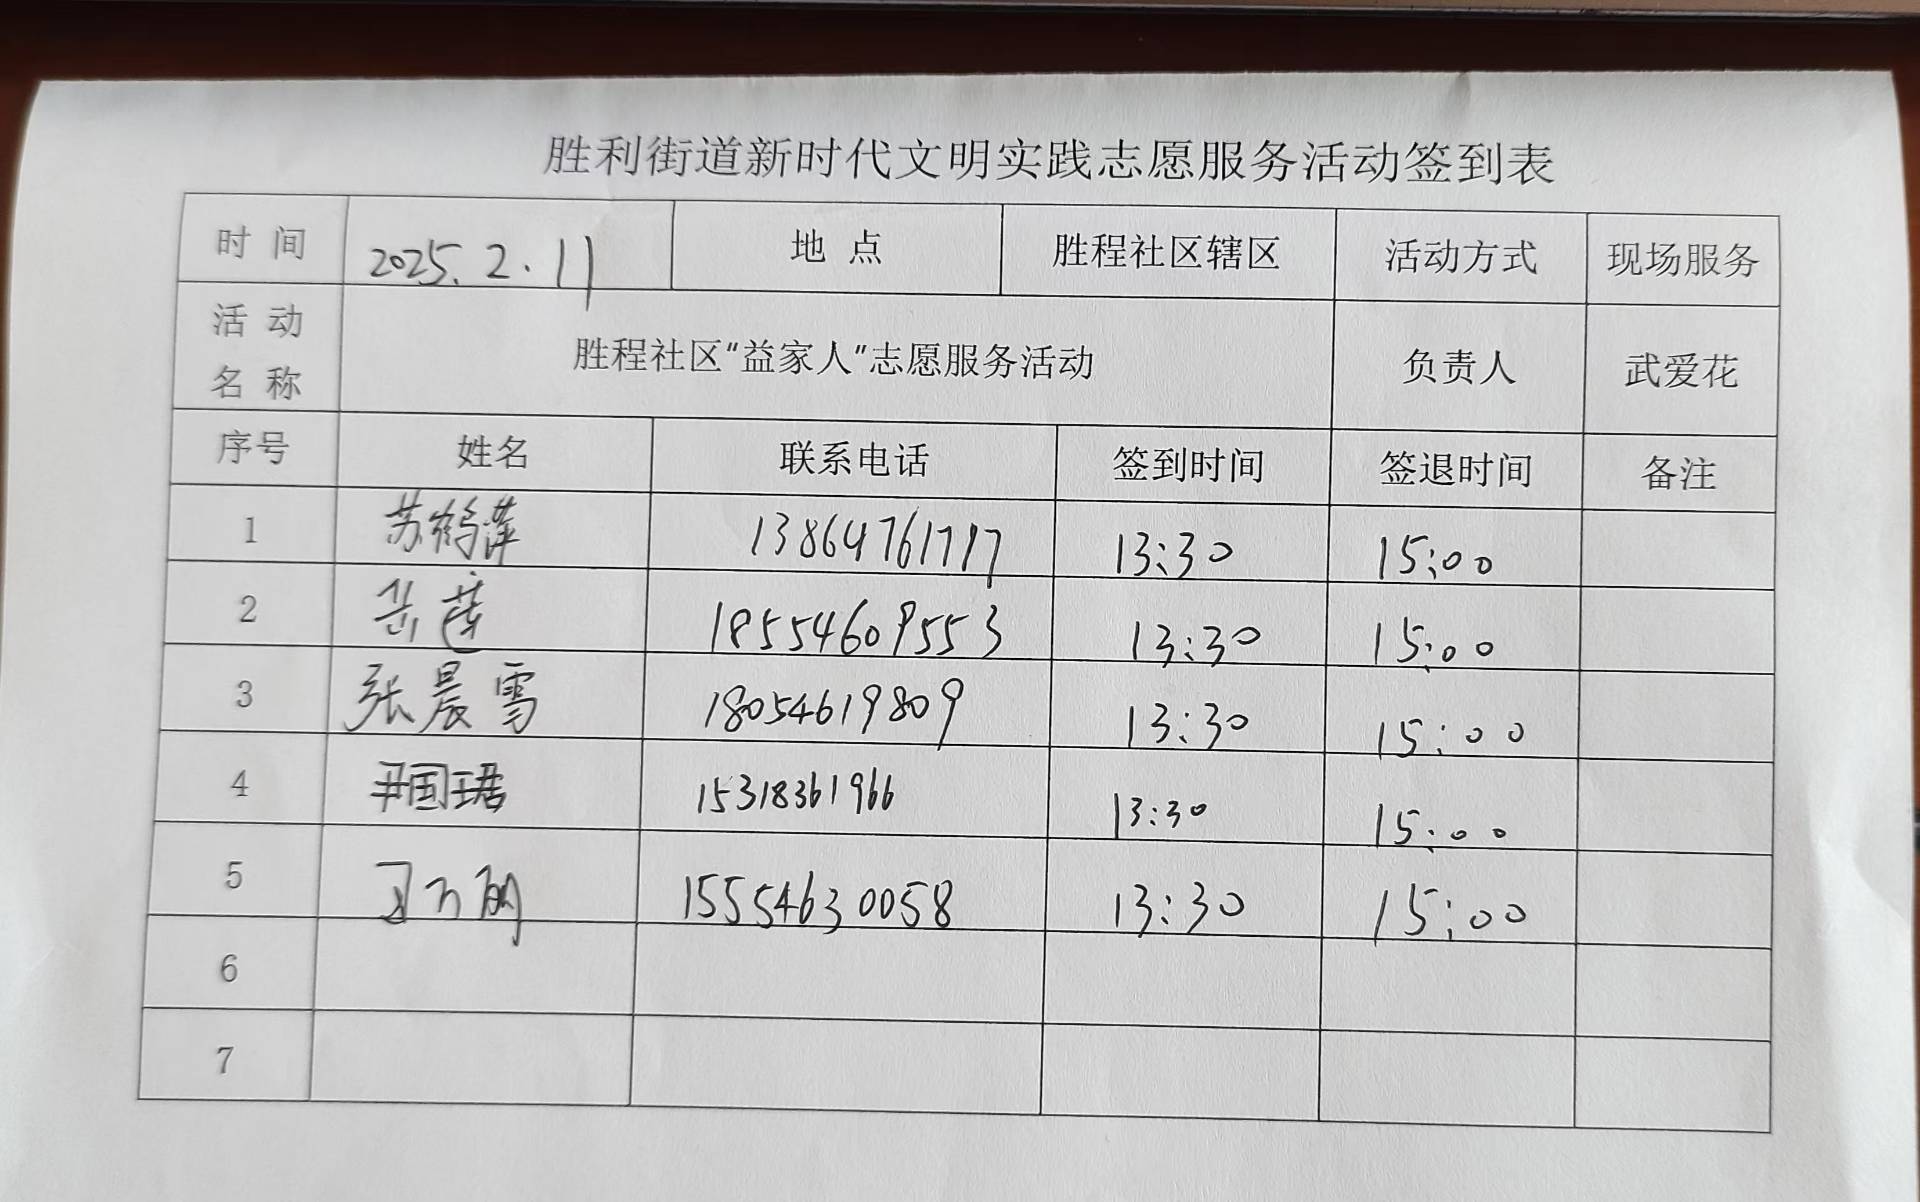 胜利街道新时代文明实践志愿服务活动签到表
时 间 2025.2.11 地 点 胜程社区辖区 活动方式 现场服务
活 动
名 称 胜程社区“益家人”志愿服务活动 负责人 武爱花
序号 姓名 联系电话 签到时间 签退时间 备注
1 苏鹤萍 13864761717 13:30 15:00
2 岳莲 18554609553 13:30 15:00
3 张晨雪 18054619809 13:30 15:00
4 尹国珺 15318361966 13:30 15:00
5 15554630058 13:30 15:00
6
7